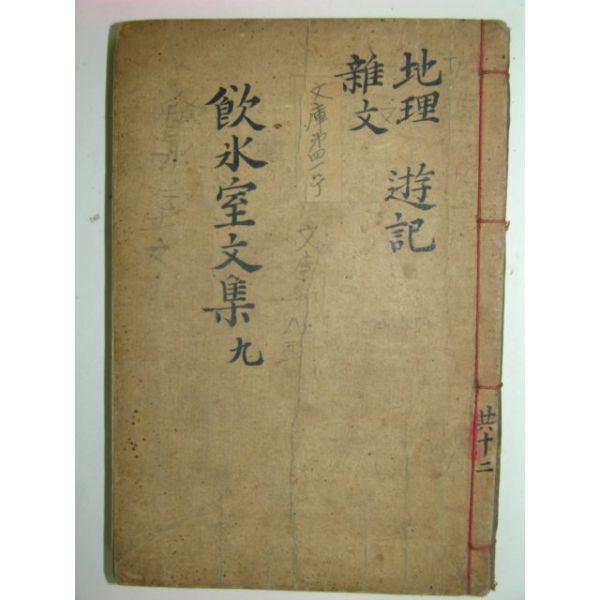 共十二
地理 遊記
雜文
文庫第四一号
飮氷室文集 九